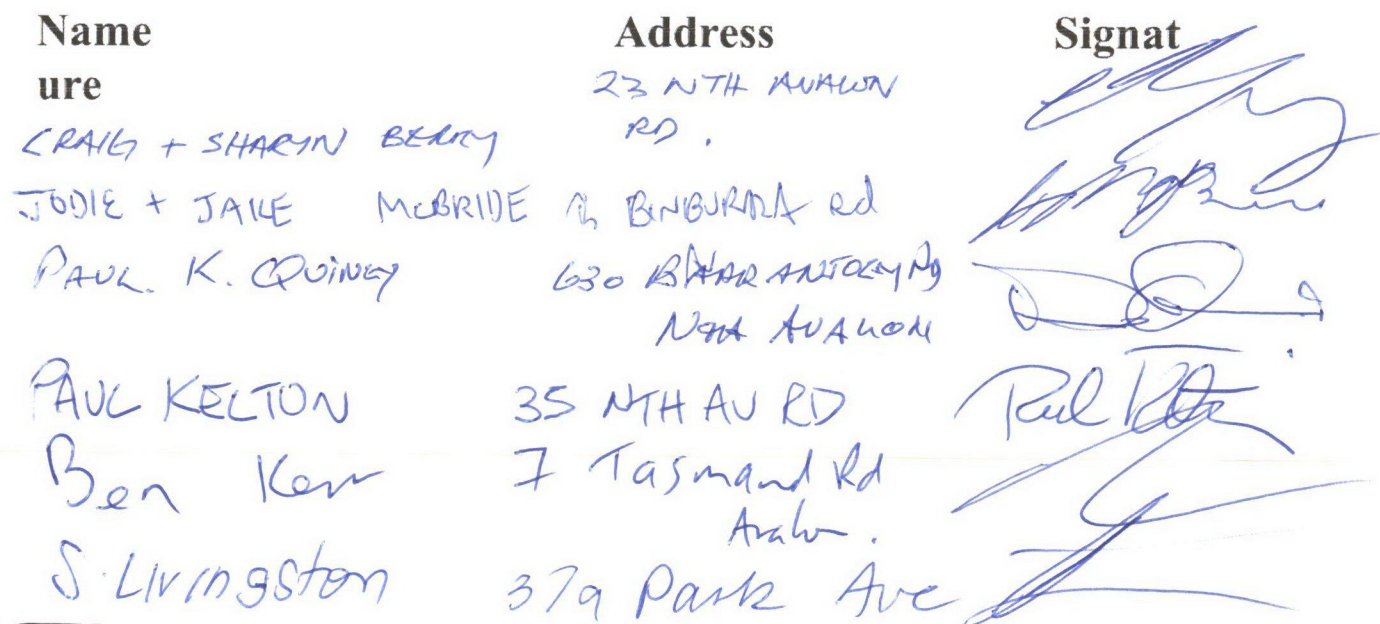 Name Address Signat
ure
23 NTH AVALON
CRAIG + SHARYN BERRY RD.
JODIE + JAKE McBRIDE BINBURRA Rd
PAUL. K. QUINEY 630 BARRANJOEY Rd
Nth AVALON
PAUL KELTON 35 NTH AV RD
Ben Kerr 7 Tasmand Rd
Avalon.
S. Livingston 37a Park Ave